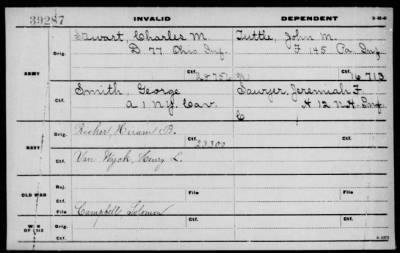 39287 INVALID DEPENDENT
Stewart, Charles M. Tuttle, John M.
Orig. D 77 Ohio Inf. F 145 Pa Inf
ARMY Ctf. 16713
Smith, George Sawyer, Jeremiah F
Ctf. A 1 N.Y. Cav. H 12 N.H. Inf
C
Richer, Hiram B.
Orig. Ctf. 23300
NAVY
Van Wyck, Henry L.
Ctf.
Rej. File File
OLD WAR
File
Campbell Solomon
Orig. Ctf.
WAR OF 1812
Ctf.